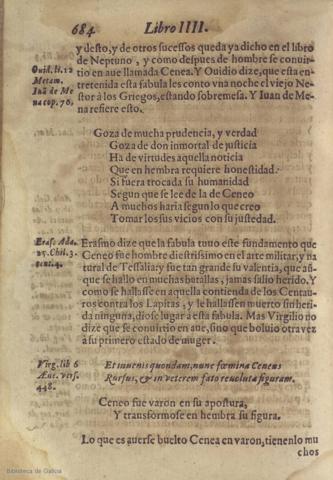 684 Libro IIII.
y desto, y de otros sucessos queda ya dicho en el libro
de Neptuno, y como despues de hombre se conuir-
tio en aue llamada Cenea. Y Ouidio dize, que esta en-
tretenida esta fabula les conto vna noche el viejo Nes-
tor à los Griegos, estando sobremesa. Y Iuan de Me-
na refiere esto.
Ouid. li. 12
Metam.
Iuã de Me
na cop. 76.
Goza de mucha prudencia, y verdad
Goza de don inmortal de justicia
Ha de virtudes aquella noticia
Que en hembra requiere honestidad.
Si fuera trocada su humanidad
Segun que se lee de la de Ceneo
A muchos haria segun lo que creo
Tomar los sus vicios con su justedad.
Eras. Ada.
Chil. 3.
cent. 4.
Erasmo dize que la fabula tuuo este fundamento que
Ceneo fue hombre diestrissimo en el arte militar, y na
tural de Tessalia: y fue tan grande su valentia, que aũ-
que se hallo en muchas batallas, jamas salio herido. Y
como se hallasse en aquella contienda de los Centau-
ros contra los Lapitas, y le hallassen muerto sin heri-
da ninguna, diose lugar a esta fabula. Mas Virgilio no
dize que se conuirtio en aue, sino que boluio otra vez
à su primero estado de muger.
Virg. lib 6
Æne. vers.
448.
Et iuuenis quondam, nunc fœmina Ceneus
Rursus, & in veterem fato reuoluta figuram.
Ceneo fue varon en su apostura,
Y transformose en hembra su figura.
Lo que es auerse buelto Cenea en varon, tienenlo mu
chos
Biblioteca de Galicia